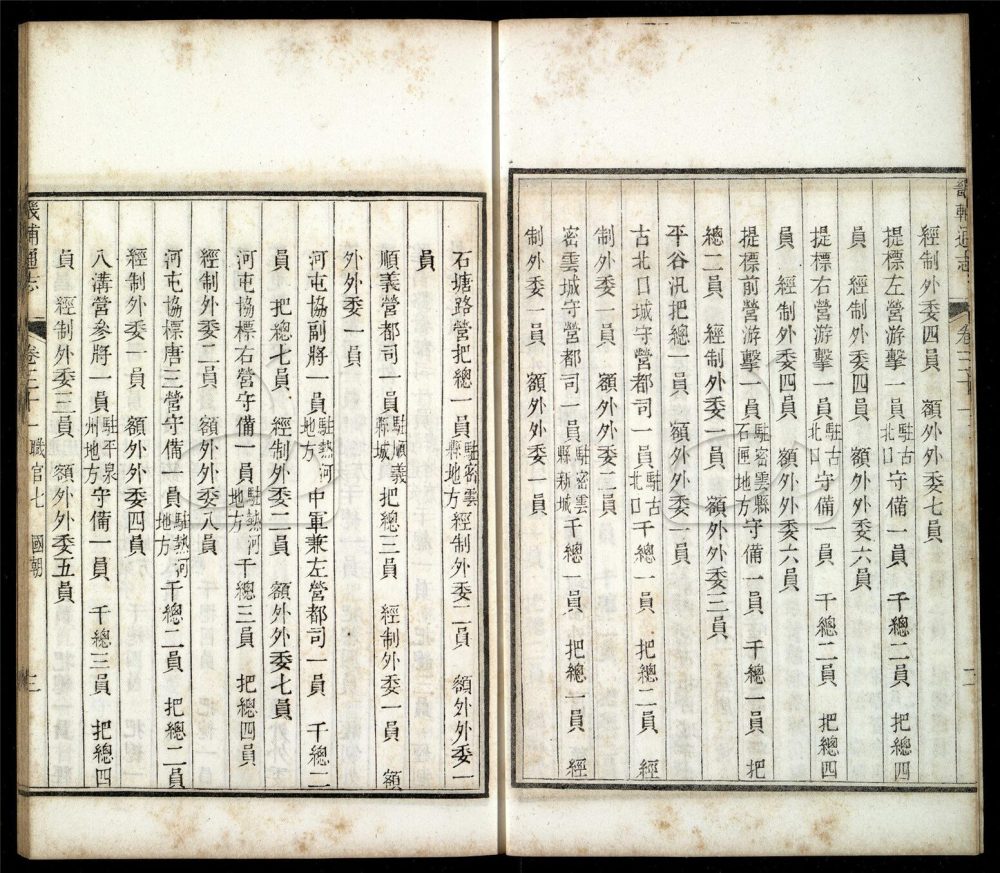 畿輔通志
卷三十一
經制外委四員　額外外委七員
提標左營游擊一員駐古北口守備一員　千總二員　把總四
員　經制外委四員　額外外委六員
提標右營游擊一員駐古北口守備一員　千總二員　把總四
員　經制外委四員　額外外委六員
提標前營游擊一員駐密雲縣石匣地方守備一員　千總一員　把
總二員　經制外委一員　額外外委三員
平谷汛把總一員　額外外委一員
古北口城守營都司一員駐古北口千總一員　把總二員　經
制外委一員　額外外委二員
密雲城守營都司一員駐密雲縣新城千總一員　把總一員　經
制外委一員　額外外委一員
石塘路營把總一員駐密雲縣地方經制外委二員　額外外委一
員
順義營都司一員駐順義縣城把總三員　經制外委一員　額
外外委一員
河屯協副將一員駐熱河地方中軍兼左營都司一員　千總二
員　把總七員　經制外委二員　額外外委七員
河屯協標右營守備一員駐熱河地方千總三員　把總四員
經制外委二員　額外外委八員
河屯協標唐三營守備一員駐熱河地方千總二員　把總二員
經制外委一員　額外外委四員
八溝營參將一員駐平泉州地方守備一員　千總三員　把總四
員　經制外委三員　額外外委五員
畿輔通志
卷三十一　職官七　國朝